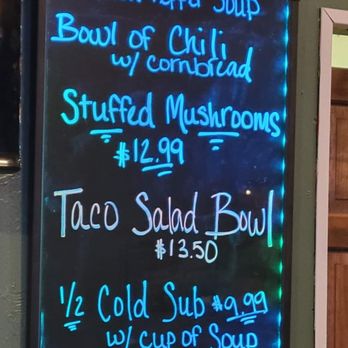 Soup
Bowl of Chili
w/ cornbread
Stuffed Mushrooms
$12.99
Taco Salad Bowl
$13.50
1/2 Cold Sub $9.99
w/ cup of Soup